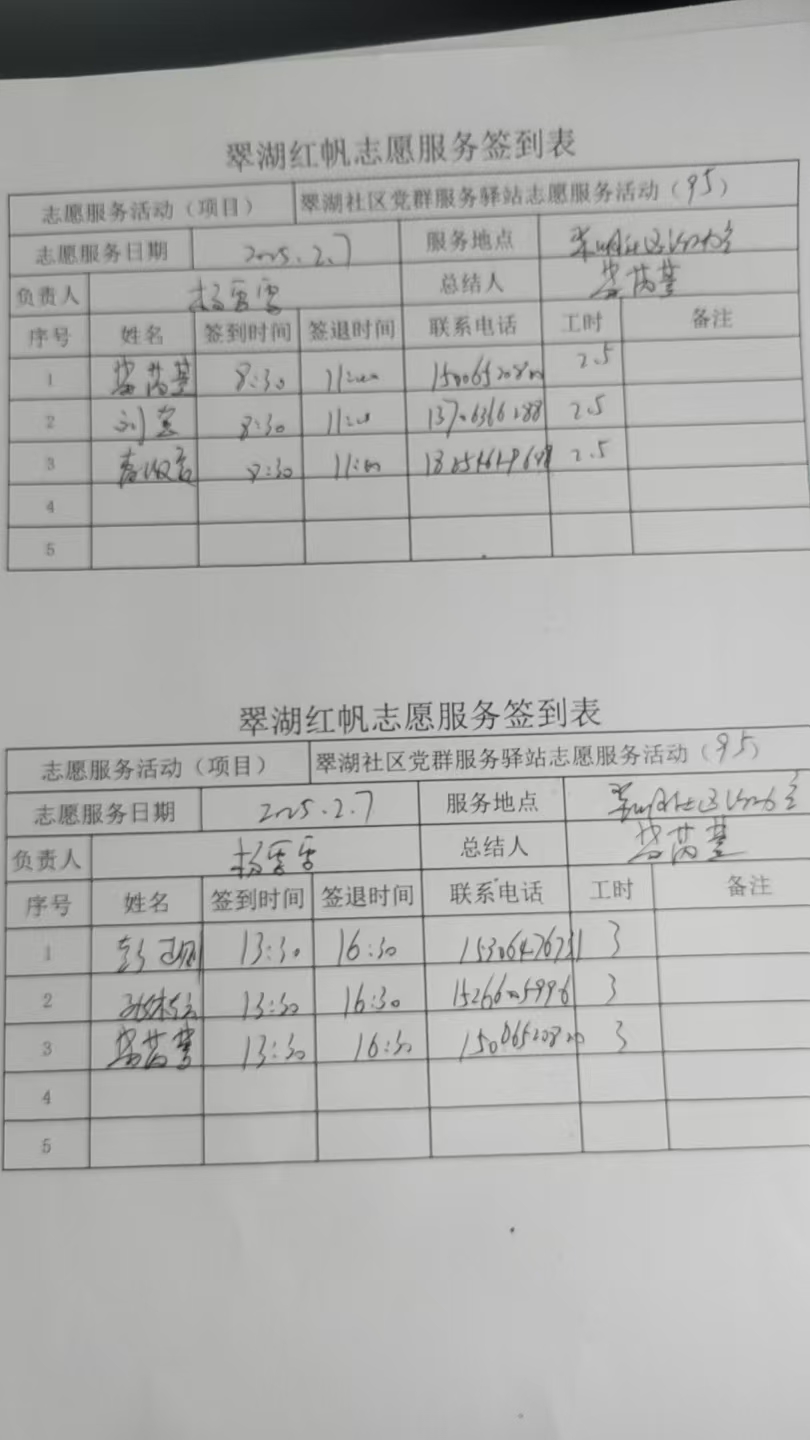 翠湖红帆志愿服务签到表
志愿服务活动（项目） 翠湖社区党群服务驿站志愿服务活动（95）
志愿服务日期 2025.2.7 服务地点
负责人 杨雪雪 总结人
序号 姓名 签到时间 签退时间 联系电话 工时 备注
1 8:30 11:00 2.5
2 8:30 11:00 13706366288 2.5
3 8:30 11:00 2.5
4
5
翠湖红帆志愿服务签到表
志愿服务活动（项目） 翠湖社区党群服务驿站志愿服务活动（95）
志愿服务日期 2025.2.7 服务地点
负责人 杨雪雪 总结人
序号 姓名 签到时间 签退时间 联系电话 工时 备注
1 13:30 16:30 3
2 13:30 16:30 15266205996 3
3 13:30 16:30 3
4
5